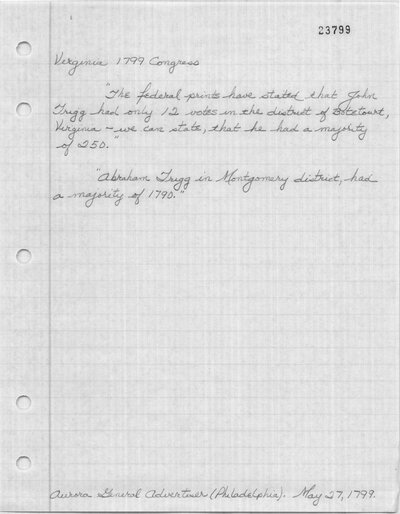 23799
Virginia 1799 Congress
"The federal prints have stated that John
Trigg had only 12 votes in the district of Botetourt,
Virginia - we can state, that he had a majority
of 250."
"Abraham Trigg in Montgomery district, had
a majority of 1790."
Aurora General Advertiser (Philadelphia). May 27, 1799.